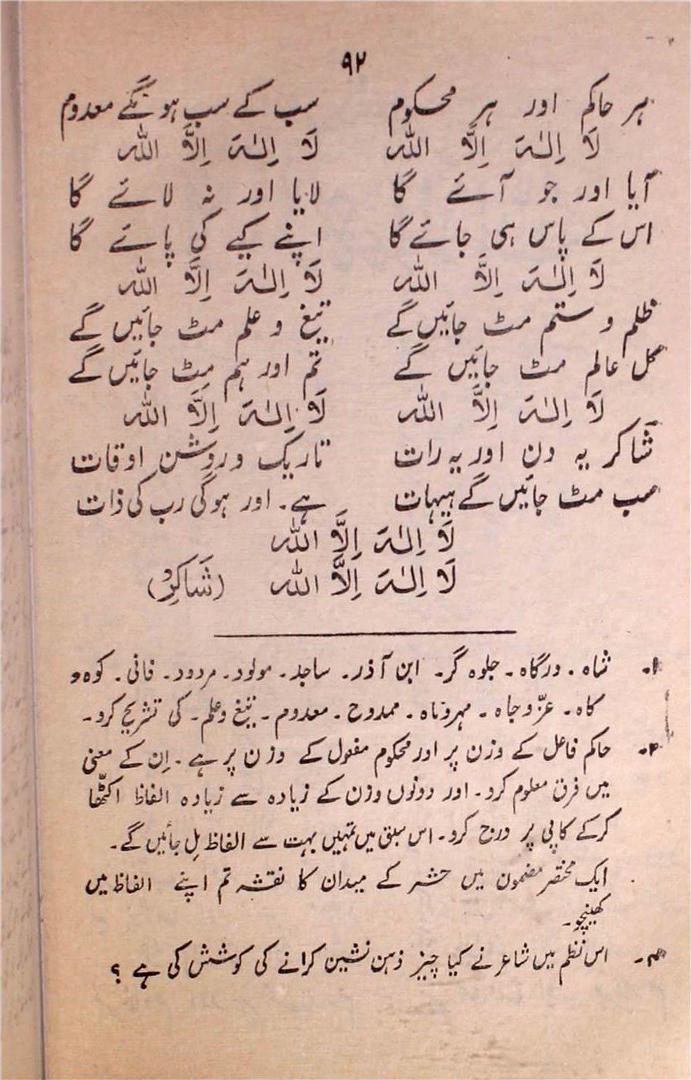 ۹۲
ہر حاکم اور ہر محکوم سب کے سب ہونگے معدوم
لَا اِلٰہَ اِلَّا اللہ لَا اِلٰہَ اِلَّا اللہ
آیا اور جو آئے گا لایا اور نہ لائے گا
اس کے پاس ہی جائے گا اپنے کیے کی پائے گا
لَا اِلٰہَ اِلَّا اللہ لَا اِلٰہَ اِلَّا اللہ
ظلم و ستم مٹ جائیں گے تیغ و علم مٹ جائیں گے
کل عالم مٹ جائیں گے تم اور ہم مِٹ جائیں گے
لَا اِلٰہَ اِلَّا اللہ لَا اِلٰہَ اِلَّا اللہ
شاکر یہ دن اور یہ رات تاریک و روشن اوقات
سب مٹ جائیں گے ہیہات ہے۔ اور ہوگی رب کی ذات
لَا اِلٰہَ اِلَّا اللہ
لَا اِلٰہَ اِلَّا اللہ (شَاکِرؔ)
۱۔ شاہ۔ درگاہ۔ جلوہ گر۔ ابن آذر۔ ساجد۔ مولود۔ مردود۔ فانی۔ کوہ و
کاہ۔ عزّ و جاہ۔ مہر و ماہ۔ ممدوح۔ معدوم۔ تیغ و علم۔ کی تشریح کرو۔
۲۔ حاکم فاعل کے وزن پر اور محکوم مفعول کے وزن پر ہے۔ اِن کے معنی
میں فرق معلوم کرو۔ اور دونوں وزن کے زیادہ سے زیادہ الفاظ اکٹھا
کرکے کاپی پر درج کرو۔ اس سبق میں تمہیں بہت سے الفاظ مِل جائیں گے۔
ایک مختصر مضمون میں حشر کے میدان کا نقشہ تم اپنے الفاظ میں
کھینچو۔
۴۔ اس نظم میں شاعر نے کیا چیز ذہن نشین کرانے کی کوشش کی ہے ؟